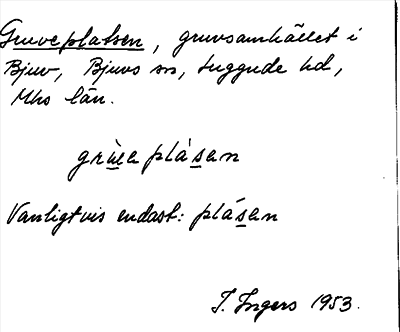 Gruveplatsen, gruvsamhället i
Bjuv, Bjuvs sn, Luggude hd,
Mhs län.
plásan
Vanligtvis endast: plásan
I. Ingers 1953.